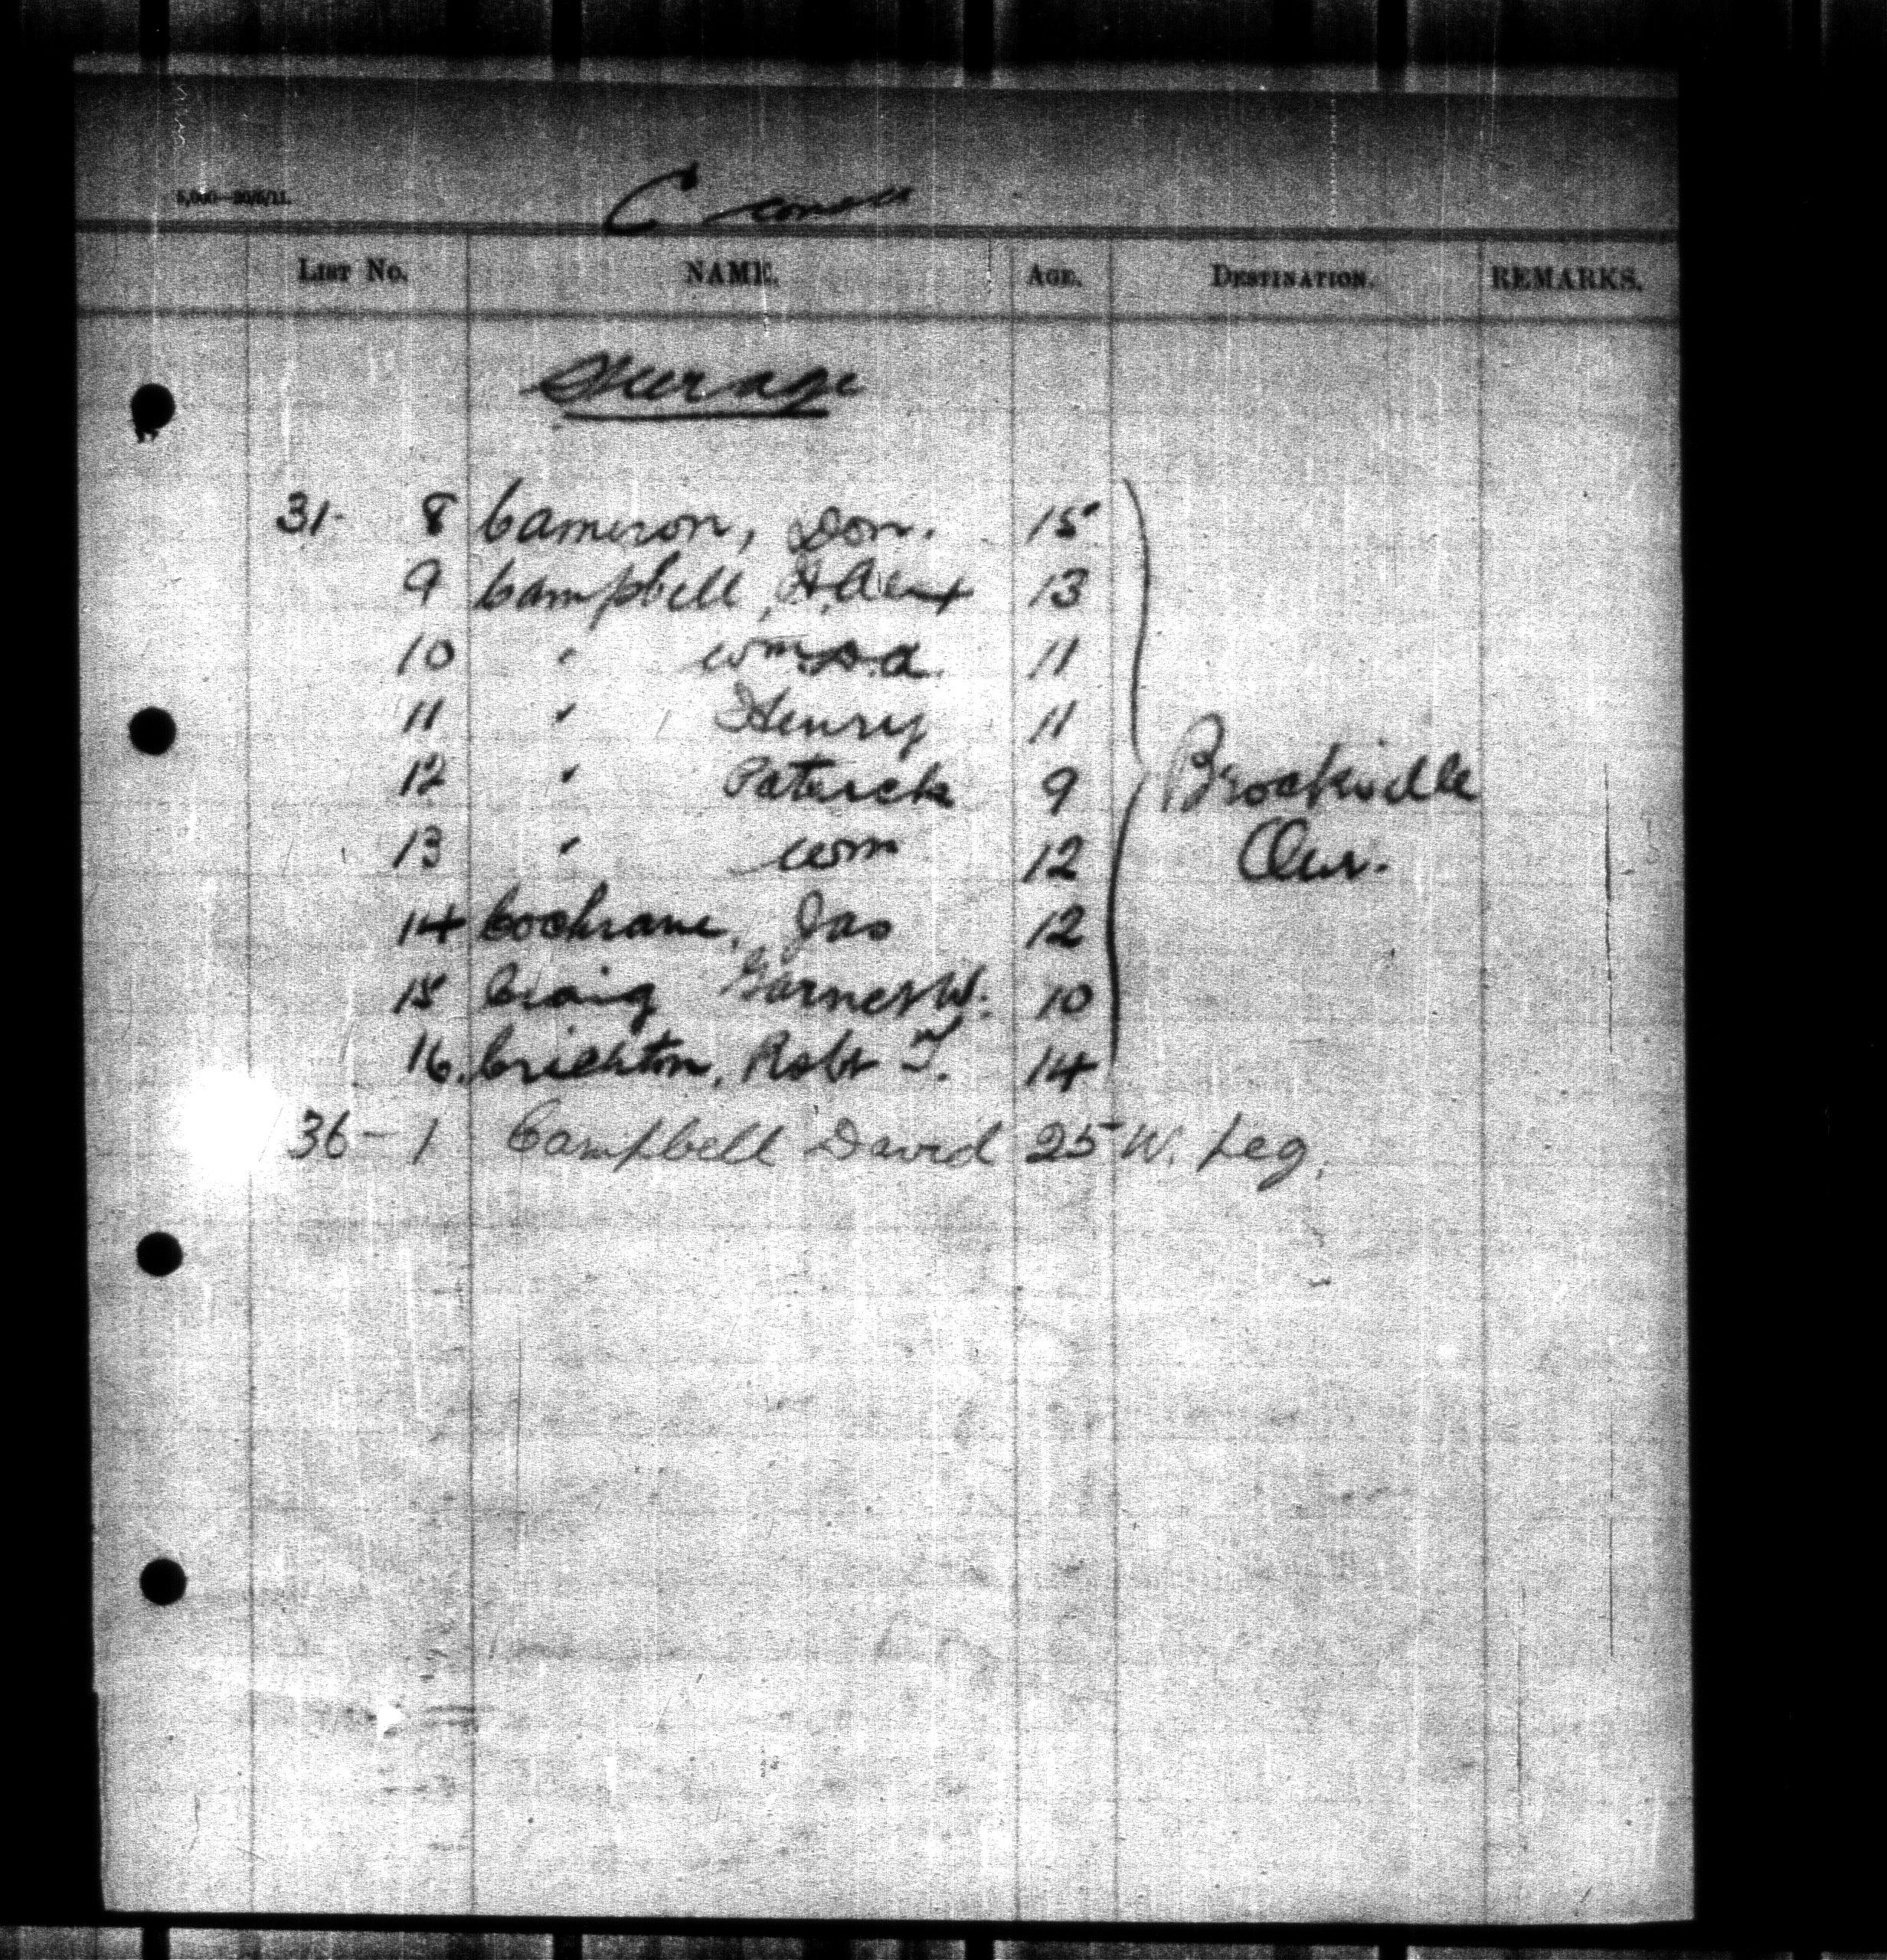 5,000—20/5/11.
C
List No. NAME. Age. Destination. REMARKS.
Steerage
31- 8 Cameron, Don. 15
9 Campbell, H. Alex 13
10 " Wm 11
11 " Henry 11
12 " Paterick 9 Brockville
13 " Wm 12 Ont.
14 Cochrane, Jas 12
15 Craig Garnet W. 10
16. Crichton, Robt T. 14
36 - 1 Campbell David 25 W. Peg.